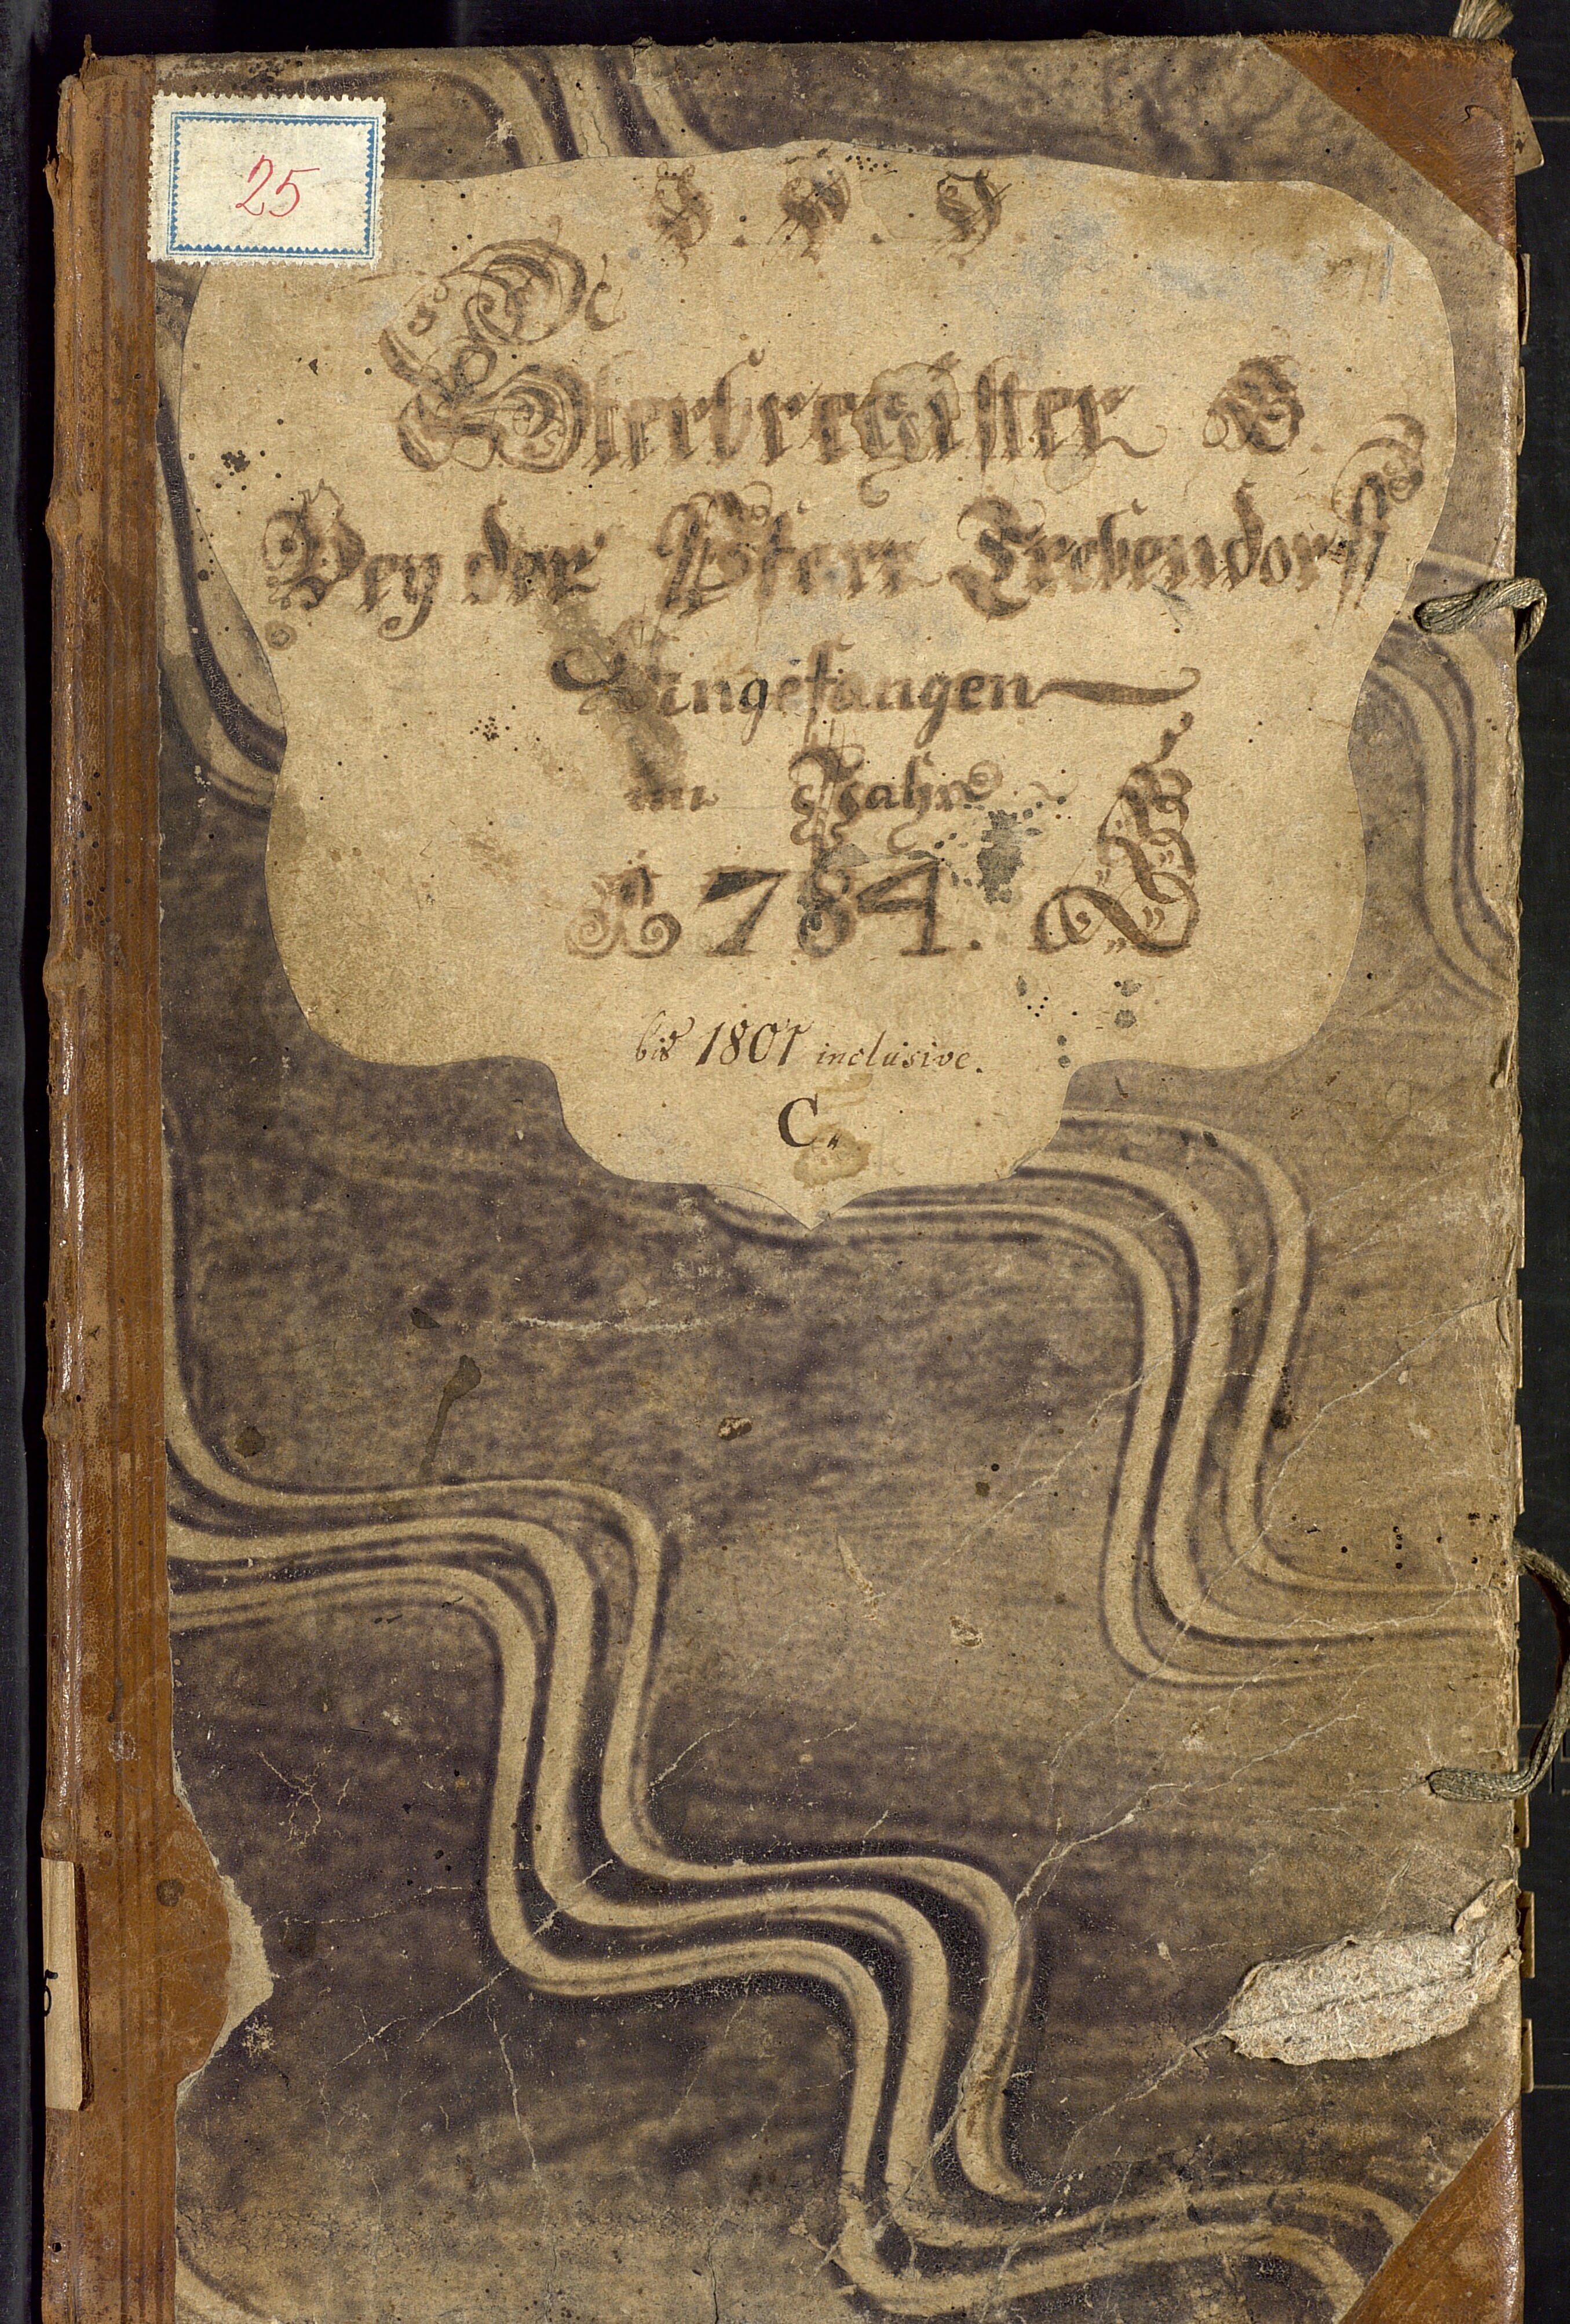 25
J. N. J.
Sterbregister B.
Bey der Pfarr Erebendorff
Angefangen
im Jahre
1784.
bis 1801 inclusive.
C.